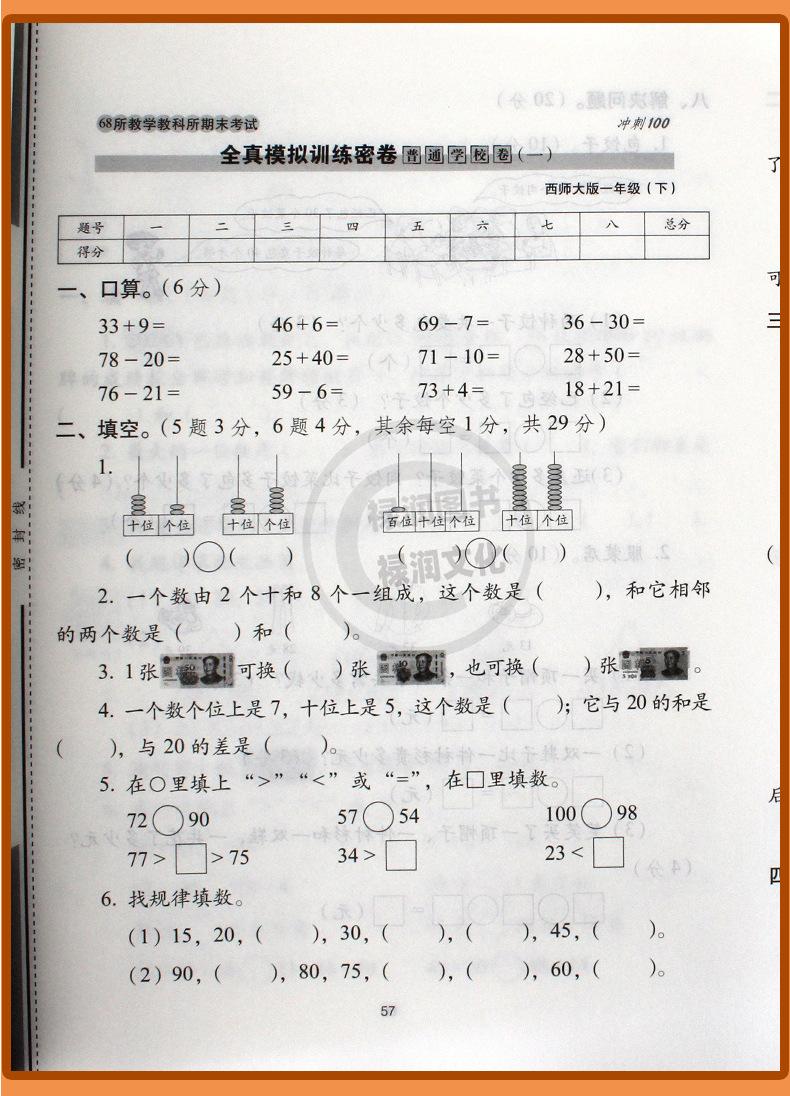 68所教学教科所期末考试
冲刺100
全真模拟训练密卷 普通学校卷 (一)
西师大版一年级(下)
题号 一 二 三 四 五 六 七 八 总分
得分
一、口算。(6分)
33+9= 46+6= 69-7= 36+30=
78-20= 25+40= 71-10= 28+50=
76-21= 59-6= 73+4= 18+21=
二、填空。(5题3分，6题4分，其余每空1分，共29分)
1.
十位 个位 十位 个位 百位 十位 个位 十位 个位
( )○( ) ( )○( )
2. 一个数由2个十和8个一组成，这个数是( )，和它相邻
的两个数是( )和( )。
3. 1张 可换( )张 ，也可换( )张 。
4. 一个数个位上是7，十位上是5，这个数是( )；它与20的和是
( )，与20的差是( )。
5. 在○里填上“>”“<”或“=”，在□里填数。
72○90 57○54 100○98
77>□>75 34>□ 23<□
6. 找规律填数。
(1) 15，20，( )，30，( )，( )，45，( )。
(2) 90，( )，80，75，( )，( )，60，( )。
57
密封线
禄润图书
禄润文化
了
可
三
(
后
四